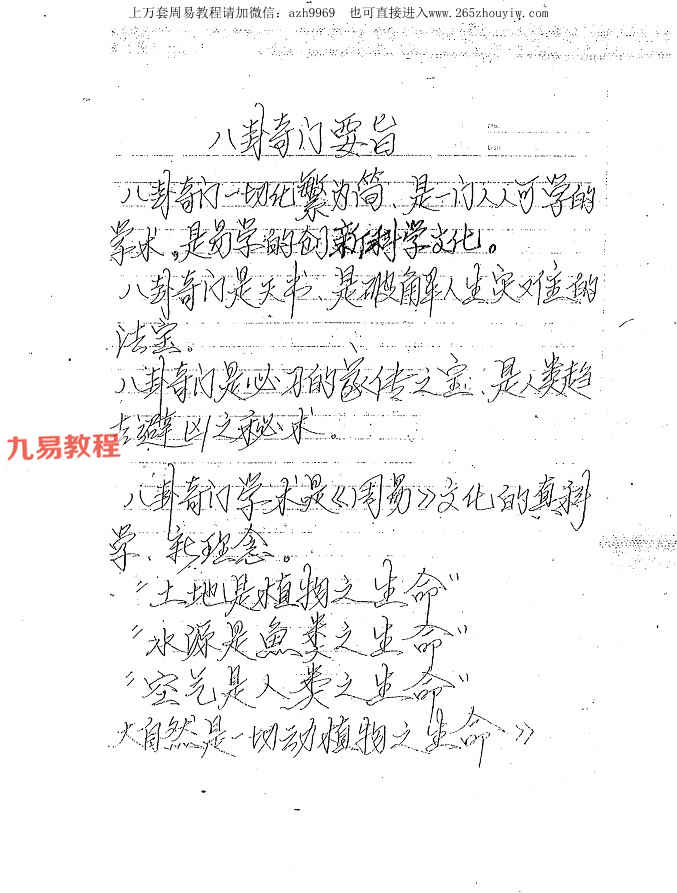 上万套周易教程请加微信：azh9969 也可直接进入www.265zhouyiw.com
八卦奇门要旨
八卦奇门一切化繁为简、是一门人人可学的
学术。是易学的创新科学文化。
八卦奇门是天书、是破解人生灾难的
法宝。
八卦奇门是必习的家传之宝、是人类趋
吉避凶之秘术。
九易教程
八卦奇门学术是《周易》文化的真科
学、新理念。
"土地是植物之生命"
"水源是魚类之生命"
"空气是人类之生命"
大自然是一切动植物之生命》